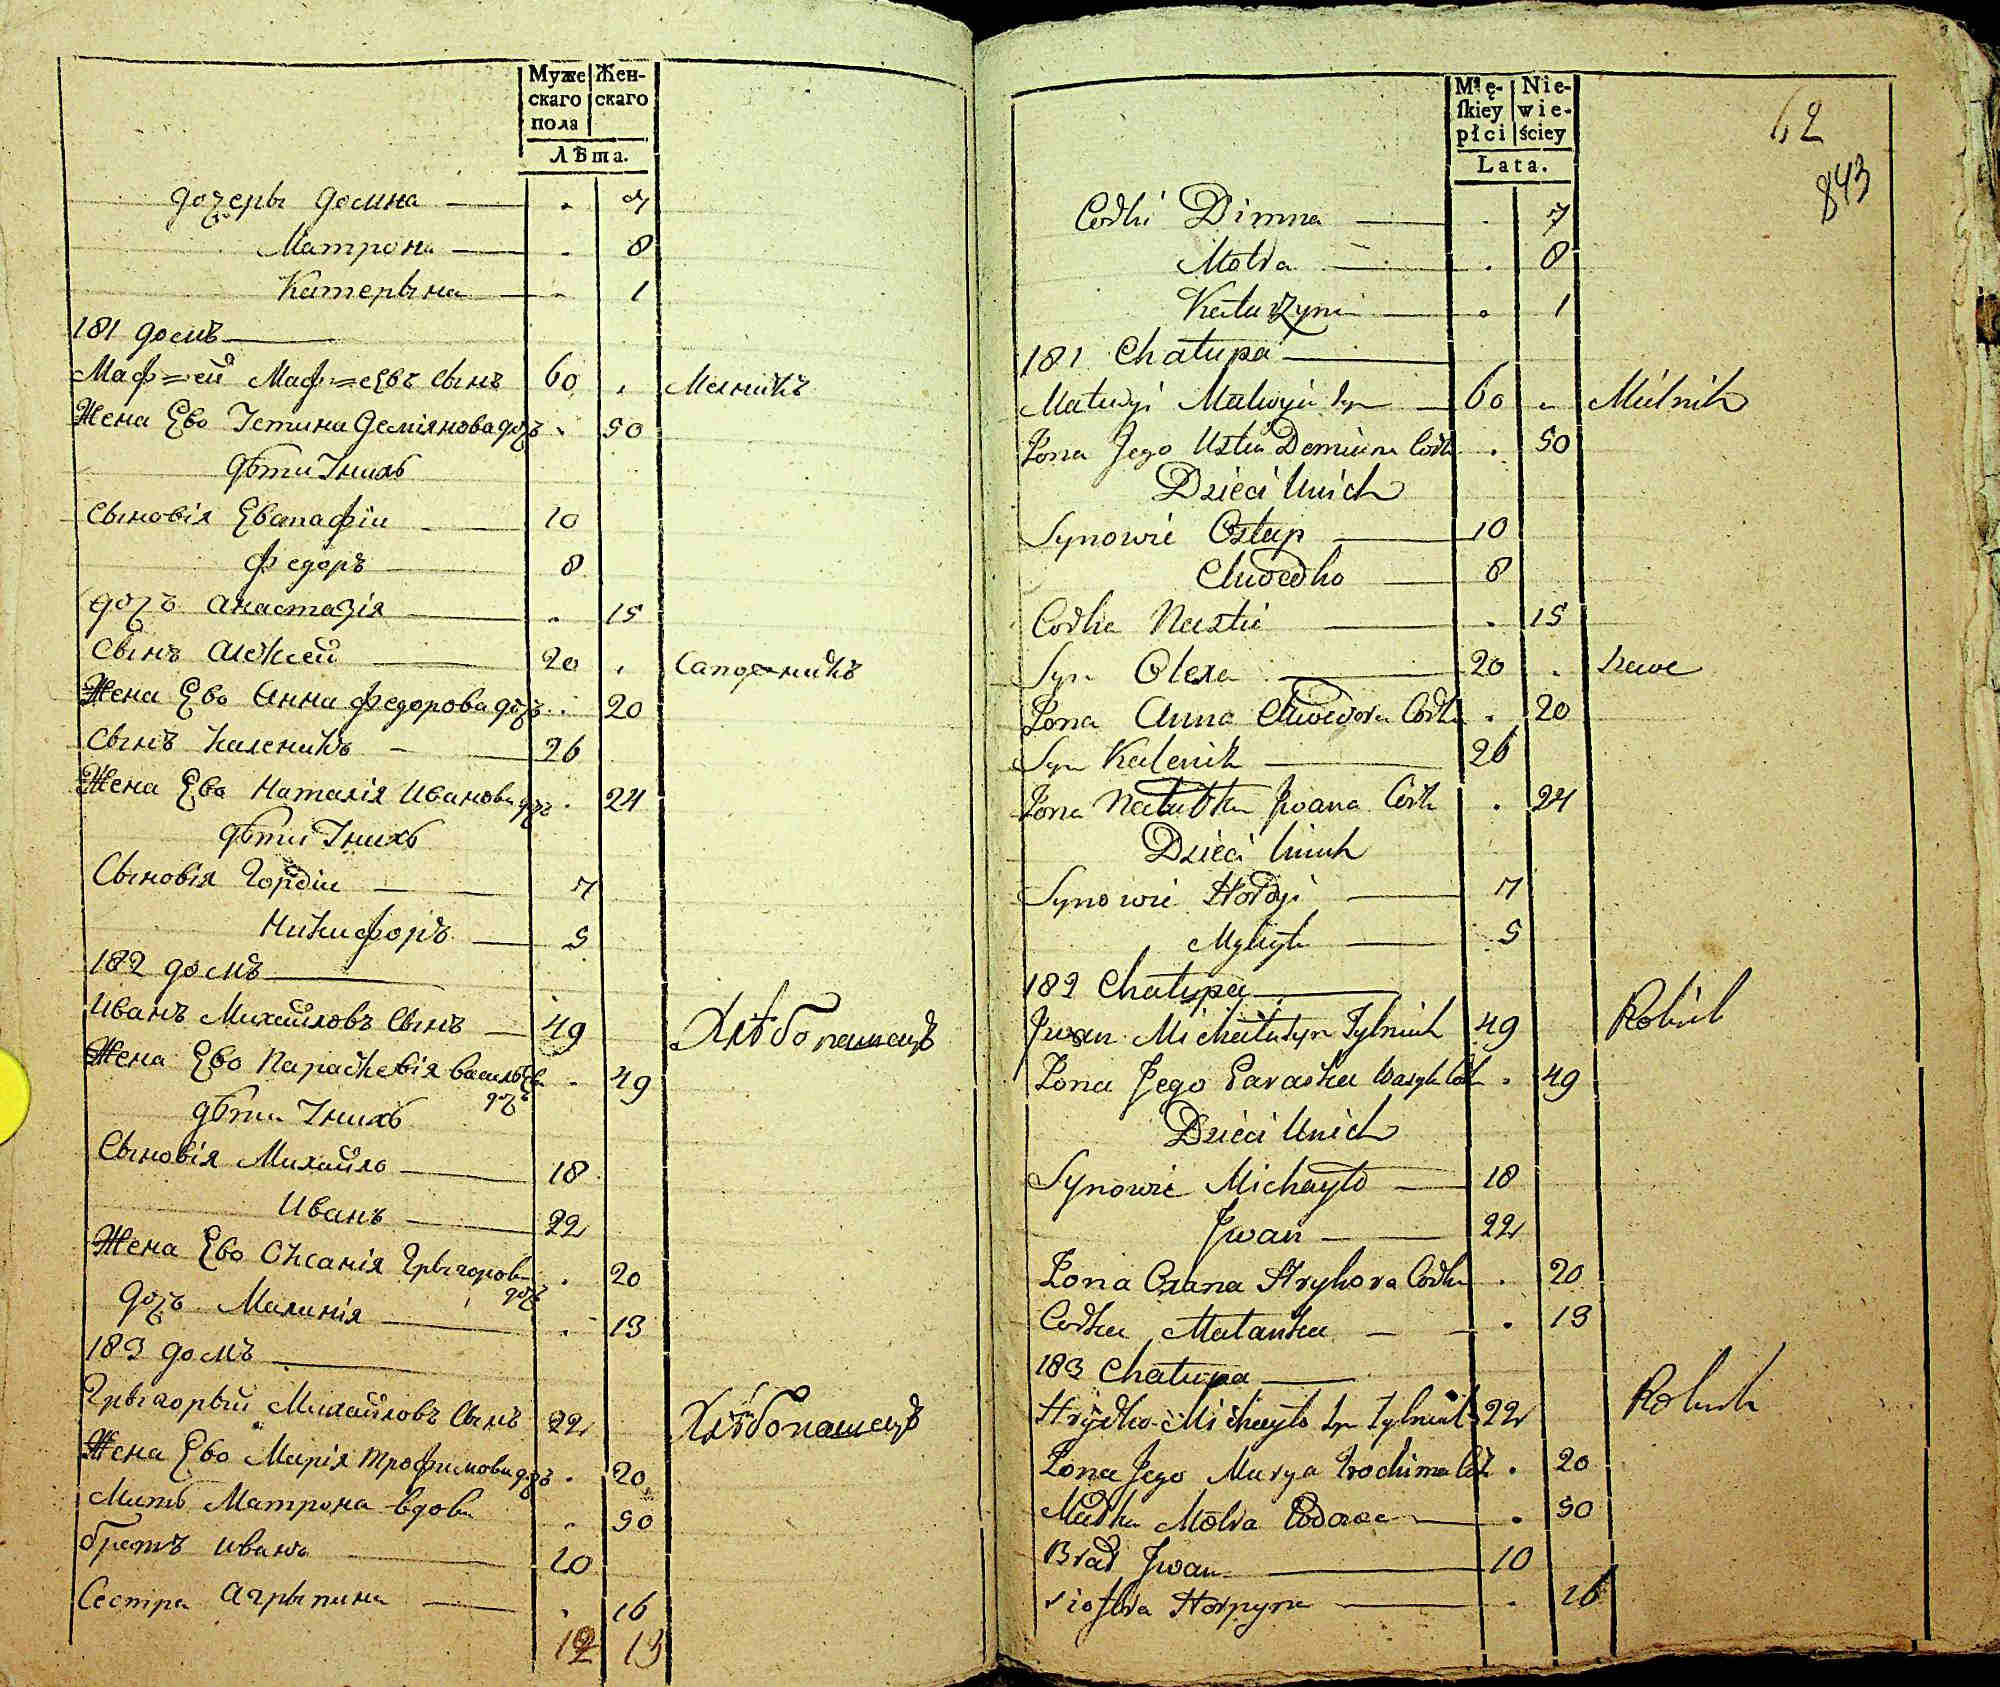 Муже Жен-
скаго скаго
пола
ЛѢта.
дочеры Домна — . 7
Матрона — . 8
Катерына — . 1
181 домъ
Матфей Матфеевъ сынъ 60 . Мелникъ
Жена Ево Устина Демянова дочь . 50
дѣти Унихъ
Сыновія Евстафіи — 10
Федоръ — 8
дочъ Анастазія — . 15
Сынъ Алексей — 20 .
Жена Ево Анна Федорова дочъ . 20
Сынъ Каленикъ — 26
Жена Ево Наталія Иванова дочъ . 24
дѣти Унихъ
Сыновія Гордіи — 7
Никифоръ — 5
182 домъ
Иванъ Михайловъ Сынъ — 49 Хлѣбопашецъ
Жена Ево Параскевія Василѣва дочъ . 49
дѣти Унихъ
Сыновія Михайло — 18
Иванъ — 22
Жена Ево Оксанія Грыгорова дочъ . 20
дочъ Маланія — . 13
183 домъ
Грыгорый Михайловъ Сынъ 22 Хлѣбопашецъ
Жена Ево Марія Трофимова дочъ . 20
Мать Матрона вдова . 50
братъ Иванъ — 10
Сестра Агрыпина — . 16
12 13
62
843
Mę- Nie-
ſkiey wie-
płci ściey
Lata.
Codki Dimna — . 7
Motra — . 8
Katarzyna — . 1
181 Chałupa
Matwyi Matwyia Syn — 60 . Mielnik
Żona Jego Ustia Demiana Codka . 50
Dzieci Unich
Synowie Ostap — 10
Chwedko — 8
Codka Nastia — . 15
Syn Olexa — 20 .
Żona Anna Chwedora Codka . 20
Syn Kalenik — 26
Żona Natałka Jwana Codka . 24
Dzieci Unich
Synowie Hordyi — 7
Mykyta — 5
182 Chałupa
Jwan Michała Syn Tylniuk 49 Robiek
Żona Jego Paraska Wasyla Codka . 49
Dzieci Unich
Synowie Michayło — 18
Jwan — 22
Żona Oxana Hryhora Codka . 20
Codka Małanka — . 13
183 Chałupa
Hrydko Michayło Syn Tylniuk 22 Robiek
Żona Jego Marya Trochima Codka . 20
Matka Motra — . 50
Brat Jwan — 10
Siostra Horpyna — . 16